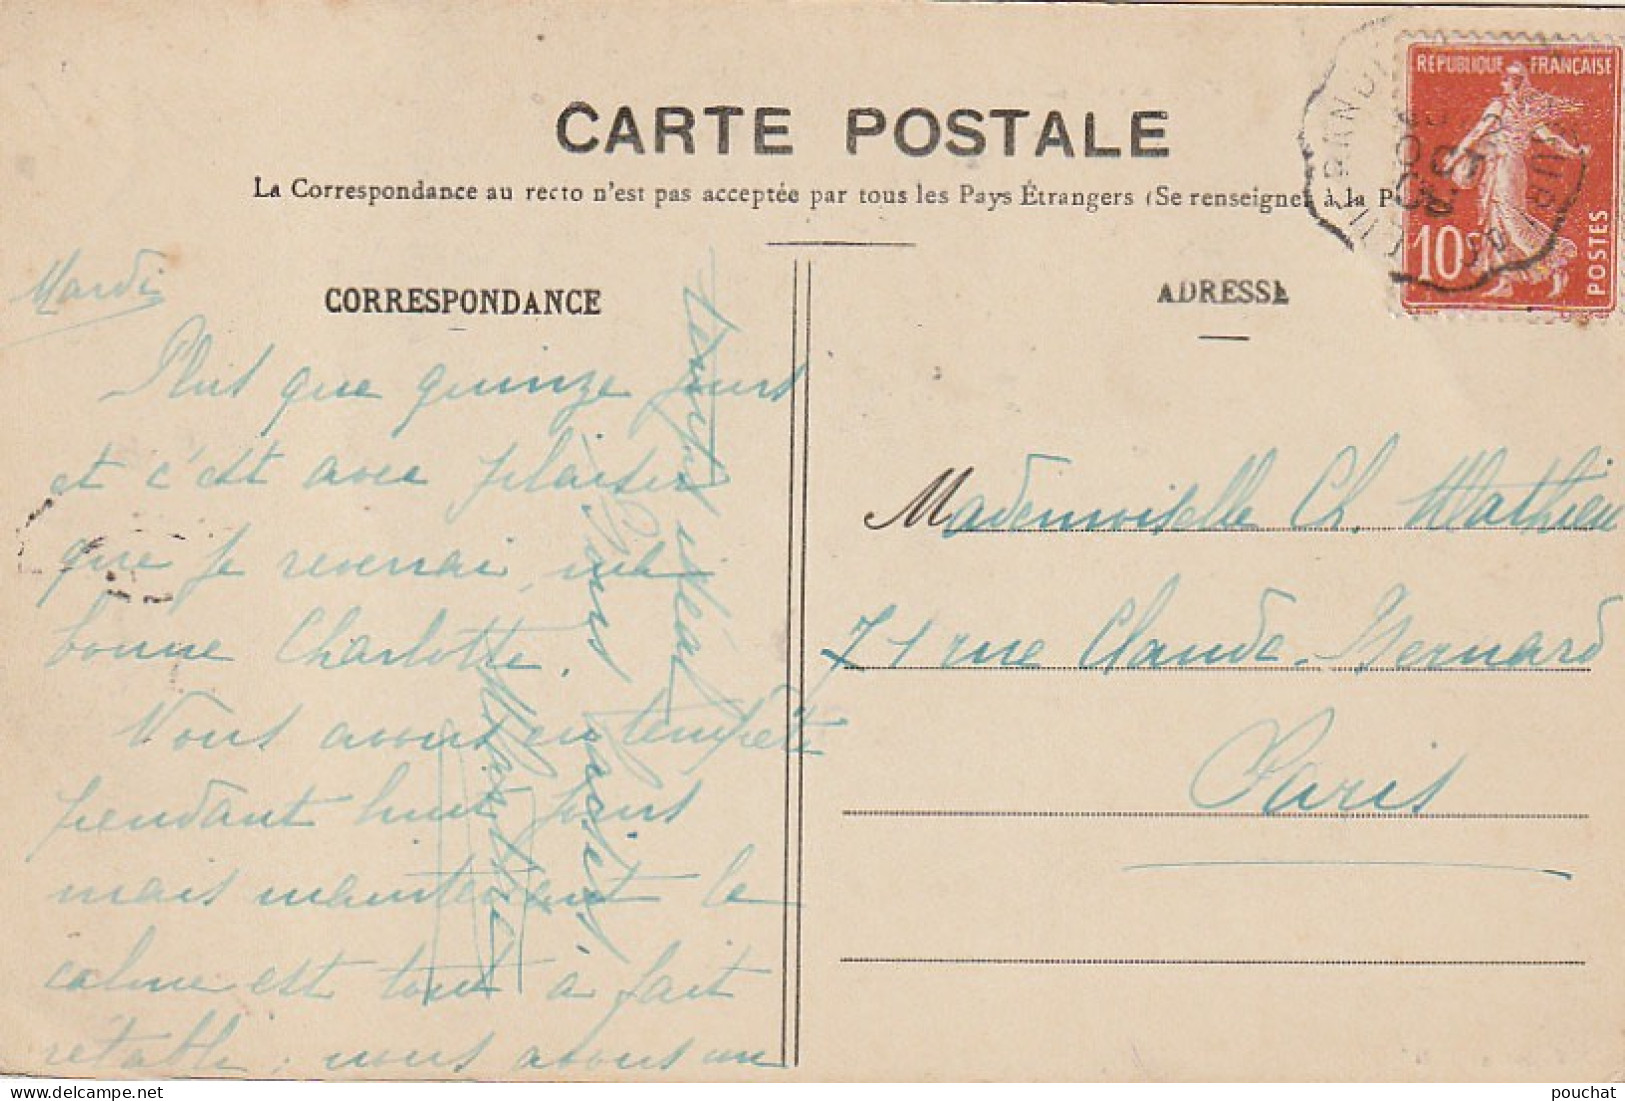 CARTE POSTALE
La Correspondance au recto n'est pas acceptée par tous les Pays Étrangers (Se renseigner à la P
RÉPUBLIQUE FRANÇAISE
10 c
POSTES
CORRESPONDANCE
ADRESSE
Mardi
Plus que quinze jours
et c'est avec plaisir
que je reverrai, ma
bonne Charlotte.
Vous avons eu tempête
pendant huit jours
mais maintenant le
calme est tout à fait
rétabli ; nous avons un
temps idéal
Bons baisers
Mademoiselle Ch. Mathieu
71 rue Claude-Bernard
Paris
pouchat